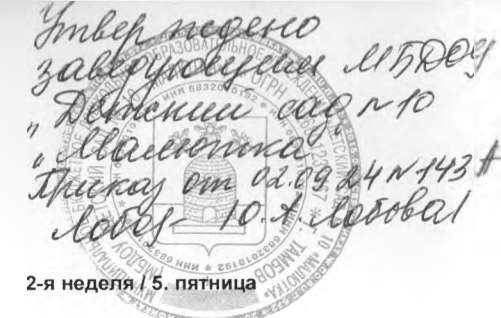 Утверждено
заведующим МБДОУ
„Детский сад №10
„Малютка"
Приказ от 02.09.24 №143
Ю.А. Лобова
2-я неделя / 5. пятница